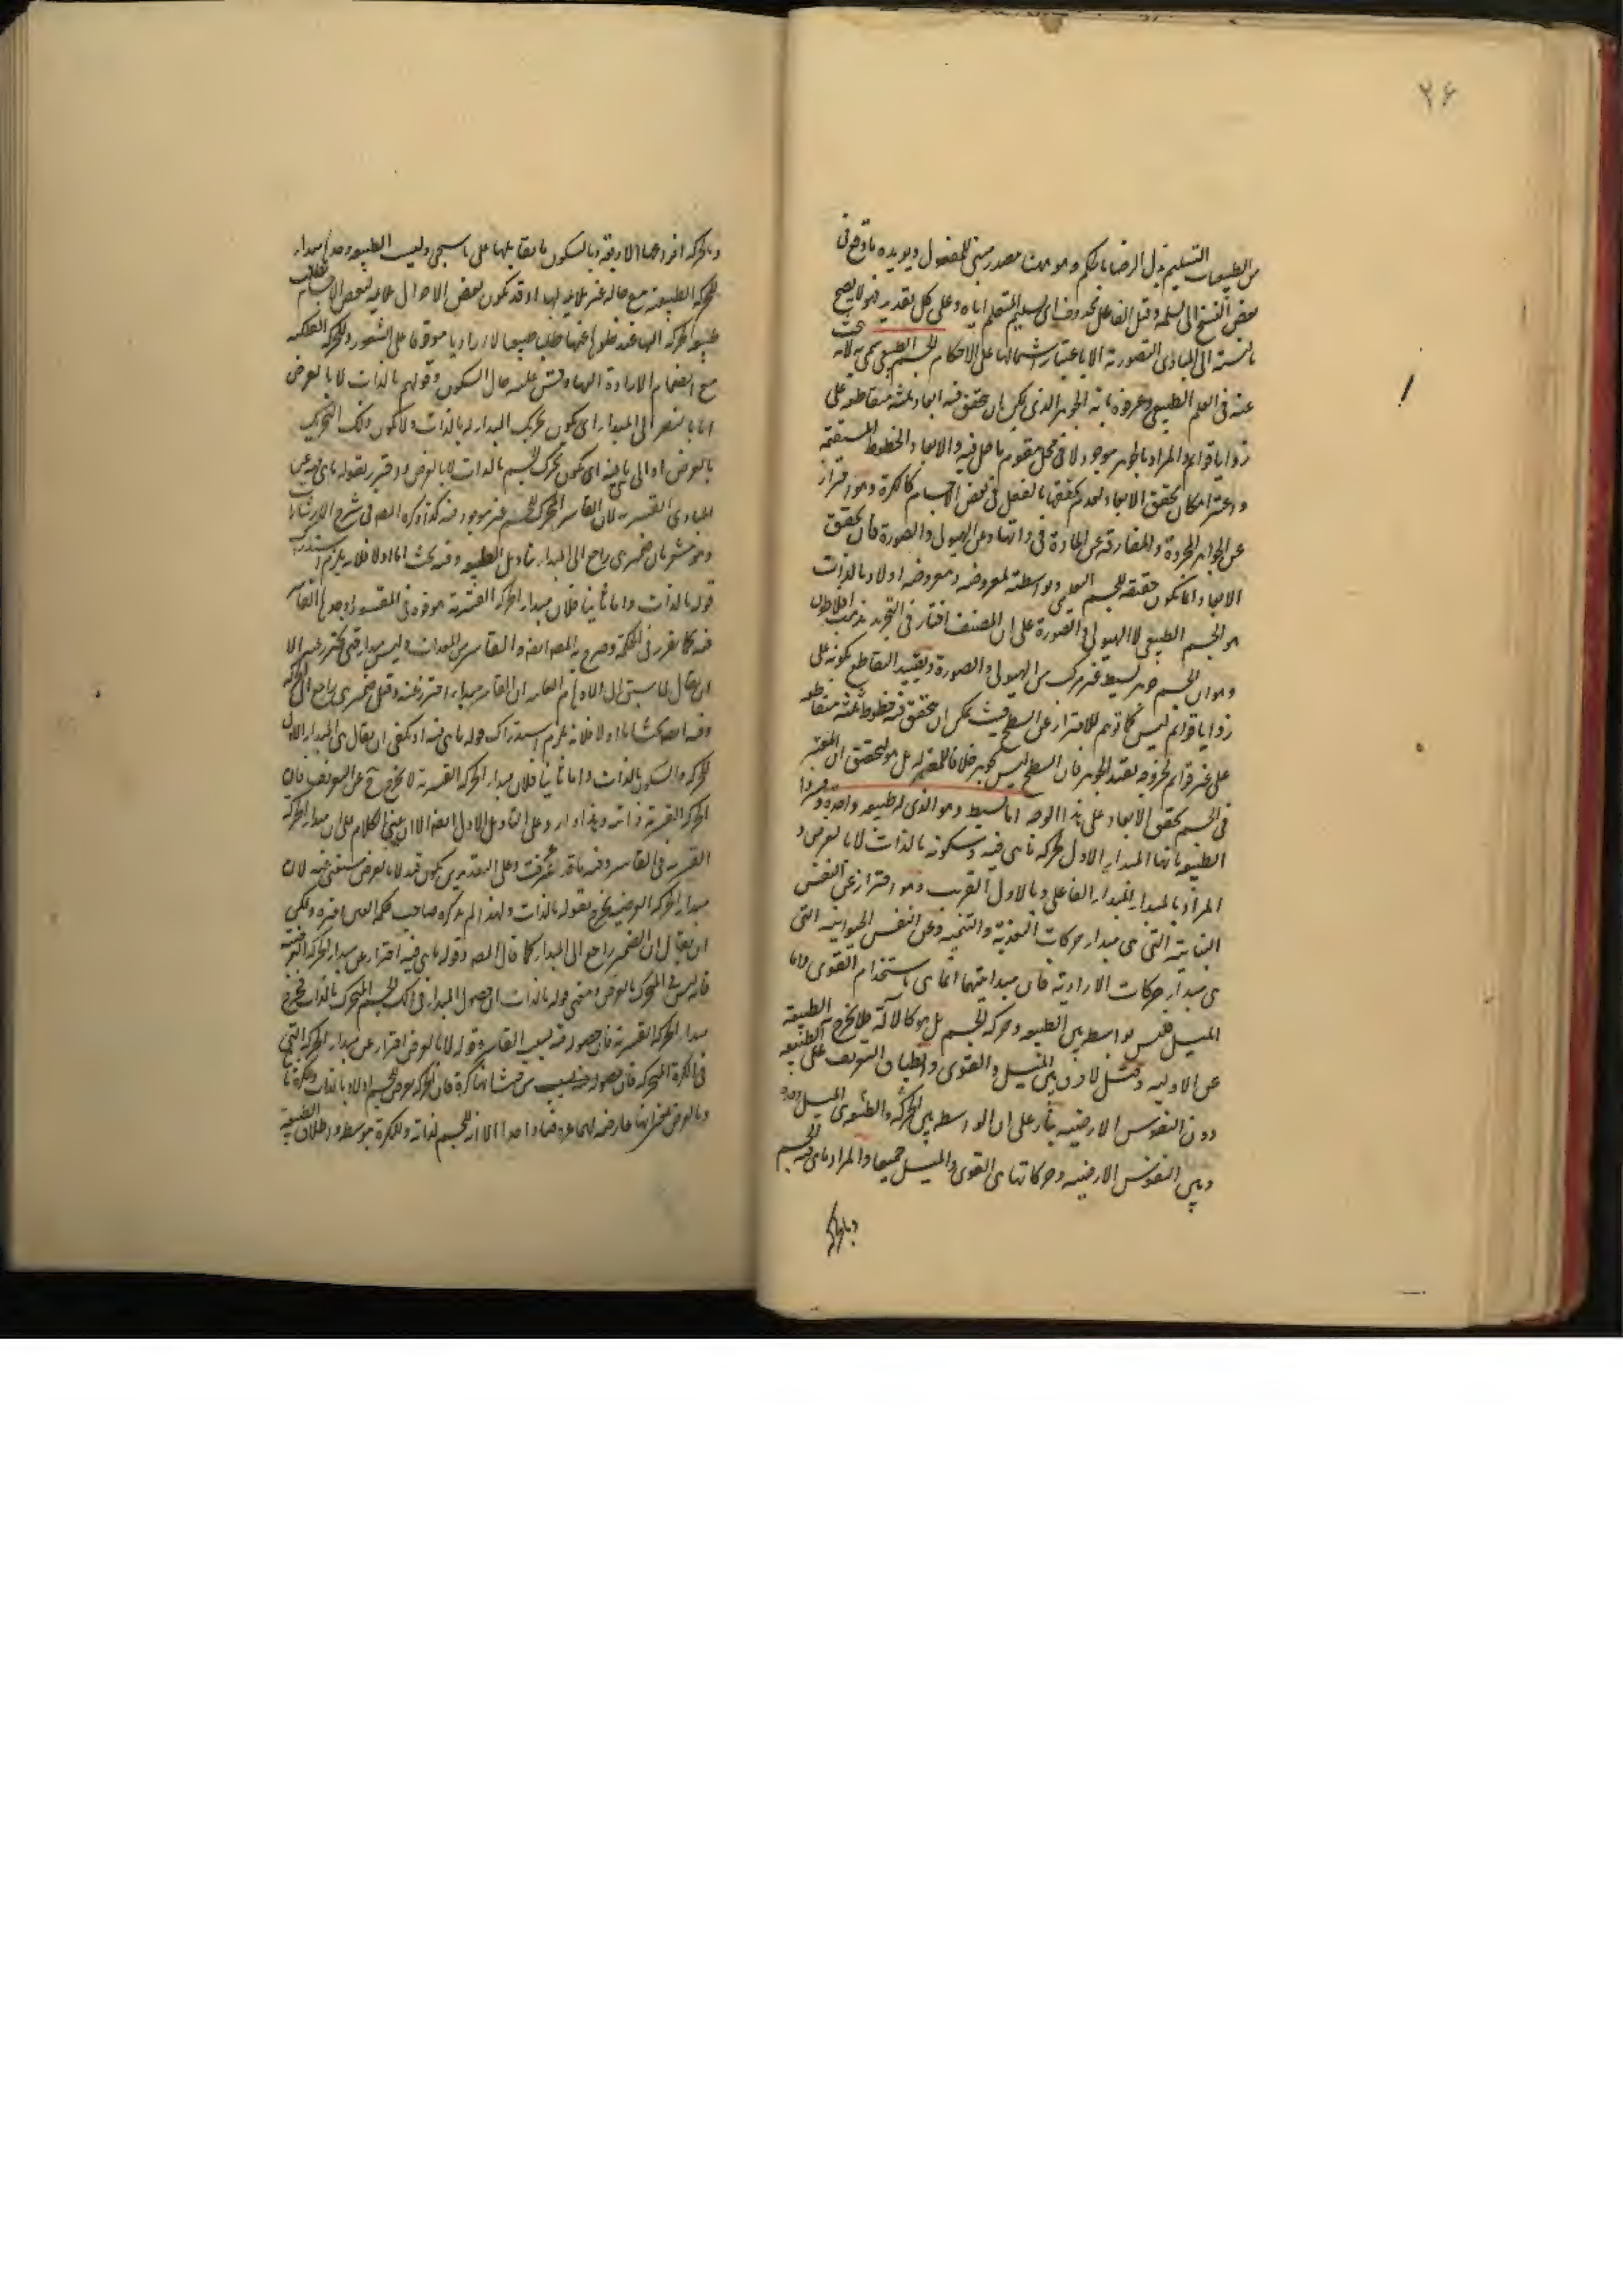 ۲۶
من الطبيعيات التسليم بذل الرضا بالحكم وهو ههنا مصدر مبنى للمفعول ويويده ما وقع فى
بعض النسخ المسلمة وقيل الفاعل محذوف اى تسليم المتعلم اياه وعلى كل تقدير فهو لا يصح
بالنسبة الى المبادى التصورية الا باعتبار اشتمالها على الاحكام الجسم الطبيعى سمى به لانه يبحث
عنه فى العلم الطبيعى وعرفوه بانه الجوهر الذى يمكن ان يتحقق فيه ابعاد ثلثة متقاطعة على
زوايا قوايم والمراد بالجوهر موجود لا فى محل مقوم لما حل فيه والابعاد الخطوط المستقيمة
واعتبر امكان تحقق الابعاد لعدم تحققها بالفعل فى بعض الاجسام كالكرة وهو احتراز
عن الجواهر المجردة والمفارقة عن المادة فى ذاتها وعن الهيولى والصورة فان تحقق
الابعاد انما يكون حقيقة للجسم التعليمى وبواسطته لمعروضه ومعروضه اولا وبالذات
هو الجسم الطبيعى لا الهيولى والصورة على ان المصنف اختار فى التجريد مذهب افلاطون
وهو ان الجسم جوهر بسيط غير مركب من الهيولى والصورة وتقييد التقاطع بكونه على
زوايا قوايم ليس كما توهم للاحتراز عن السطح حيث يمكن ان يتحقق فيه خطوط ثلثة متقاطعة
على غير قوايم لخروجه بقيد الجوهر فان السطح ليس بجوهر خلافا للمعتزلة بل هو لتحقق ان المعتبر
فى الجسم تحقق الابعاد على هذا الوجه اما بسيط وهو الذى له طبيعة واحدة
الطبيعة بانها المبدا الاول لحركة ما هى فيه وسكونه بالذات لا بالعرض و
المراد بالمبدا المبدا الفاعلى وبالاول القريب وهو احتراز عن النفس
النباتية التى هى مبدا حركات التغذية والتنمية وعن النفس الحيوانية التى
هى مبدا حركات الارادية فان مبدايتهما انما هى باستخدام القوى واما
الميل فليس بواسطة بين الطبيعة وحركة الجسم بل هو كالآلة فلا يخرج به الطبيعة
عن الاولية وقيل لا فرق بين الميل والقوى وانطباق التعريف على الطبيعة
دون النفوس الارضية بناء على ان الواسطة بين الحركة والطبيعة هى الميل وحده
وبين النفوس الارضية وحركاتها هى القوى والميل جميعا والمراد بما هى فيه الجسم
وبالحركة
وبالحركة انواعها الاربعة وبالسكون ما يقابلها على ما سيجى وليست الطبيعة وحدها مبدا
للحركة الطبيعية مع حالة غير ملايمة لها وقد تكون بعض الاحوال ملايمة لبعض الاجسام
مع انضمام الارادة اليها وقس عليه حال السكون وقولهم بالذات لا بالعرض
اما بالنظر الى المبدا اى يكون تحريك المبدا له بالذات ولا يكون ذلك التحريك
بالعرض او الى ما هى فيه اى يكون تحرك الجسم بالذات لا بالعرض واحترز بقوله ما هى فيه عن
المبادى القسرية لان القاسر المحرك للجسم غير موجود فيه كذا ذكره المصـ فى شرح الاشارات
وهو مشعر بان ضمير هى راجع الى المبدا بتاويل الطبيعة وفيه بحث اما اولا فلانه يلزم استدراك
قوله بالذات واما ثانيا فلان مبدا الحركة القسرية قوة فى المقسور اوجدها القاسر
فيه كما تقرر فى الحكمة وصرح به المصـ ايضا والقاسر من المعدات وليس مبدا حتى يحترز عنه الا
ان يقال لما سبق الى الاوهام العامية ان القاسر مبدا احترز عنه وقيل ضمير هى راجع الى الحركة
وفيه ايضا بحث اما اولا فلانه يلزم استدراك قوله ما هى فيه اذ يكفى ان يقال هى المبدا الاول
للحركة والسكون بالذات واما ثانيا فلان مبدا الحركة القسرية لا يخرج ح عن التعريف فان
الحركة القسرية ذاتية وهذا وارد على التاويل الاول ايضا الا ان يبتنى الكلام على ان مبدا الحركة
القسرية هو القاسر وفيه ما قد عرفت وعلى التقديرين يكون قيد لا بالعرض مستغنى عنه لان
مبدا الحركة العرضية يخرج بقوله بالذات ولهذا لم يذكره صاحب حكمة العين وغيره ويمكن
ان يقال ان الضمير راجع الى المبدا كما قال المصـ وقوله ما هى فيه احتراز عن مبدا الحركة العرضية
فانه ليس فى المتحرك بالعرض ومعنى قوله بالذات ان حصول المبدا فى ذلك الجسم المتحرك بالذات فخرج
مبدا الحركة القسرية فان حصوله فيه بسبب القاسر وقوله لا بالعرض احتراز عن مبدا الحركة التى
فى الكرة المتحركة فان حصوله فيه ليس من حيث انها كرة فان الحركة تعرض للجسم اولا وبالذات وللكرة ثانيا
وبالعرض بمعنى انها عارضة لهما عروضا واحدا الا انه للجسم لذاته وللكرة بتوسطه واطلاق الطبيعة